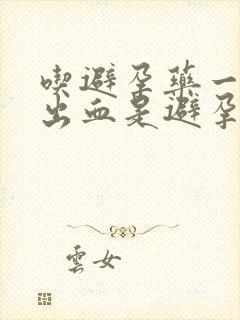 喫避孕藥一
出血是避孕
雲女